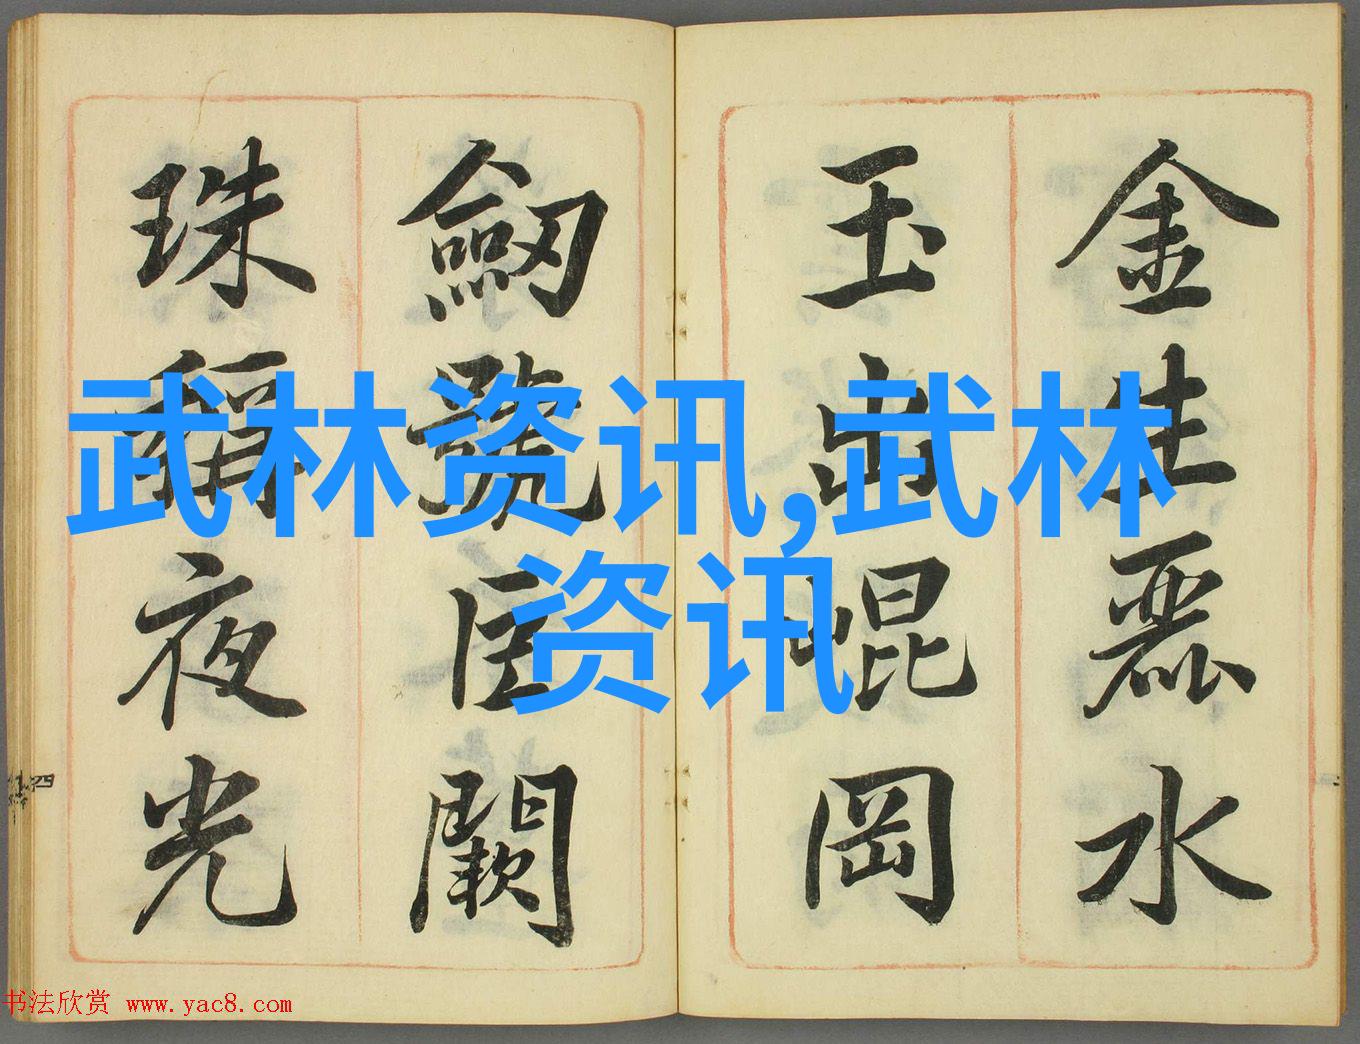 金生麗水
玉出崐岡
劒號巨闕
珠稱夜光
武林资讯,武林
资讯
四
书法欣赏 www.yac8.com